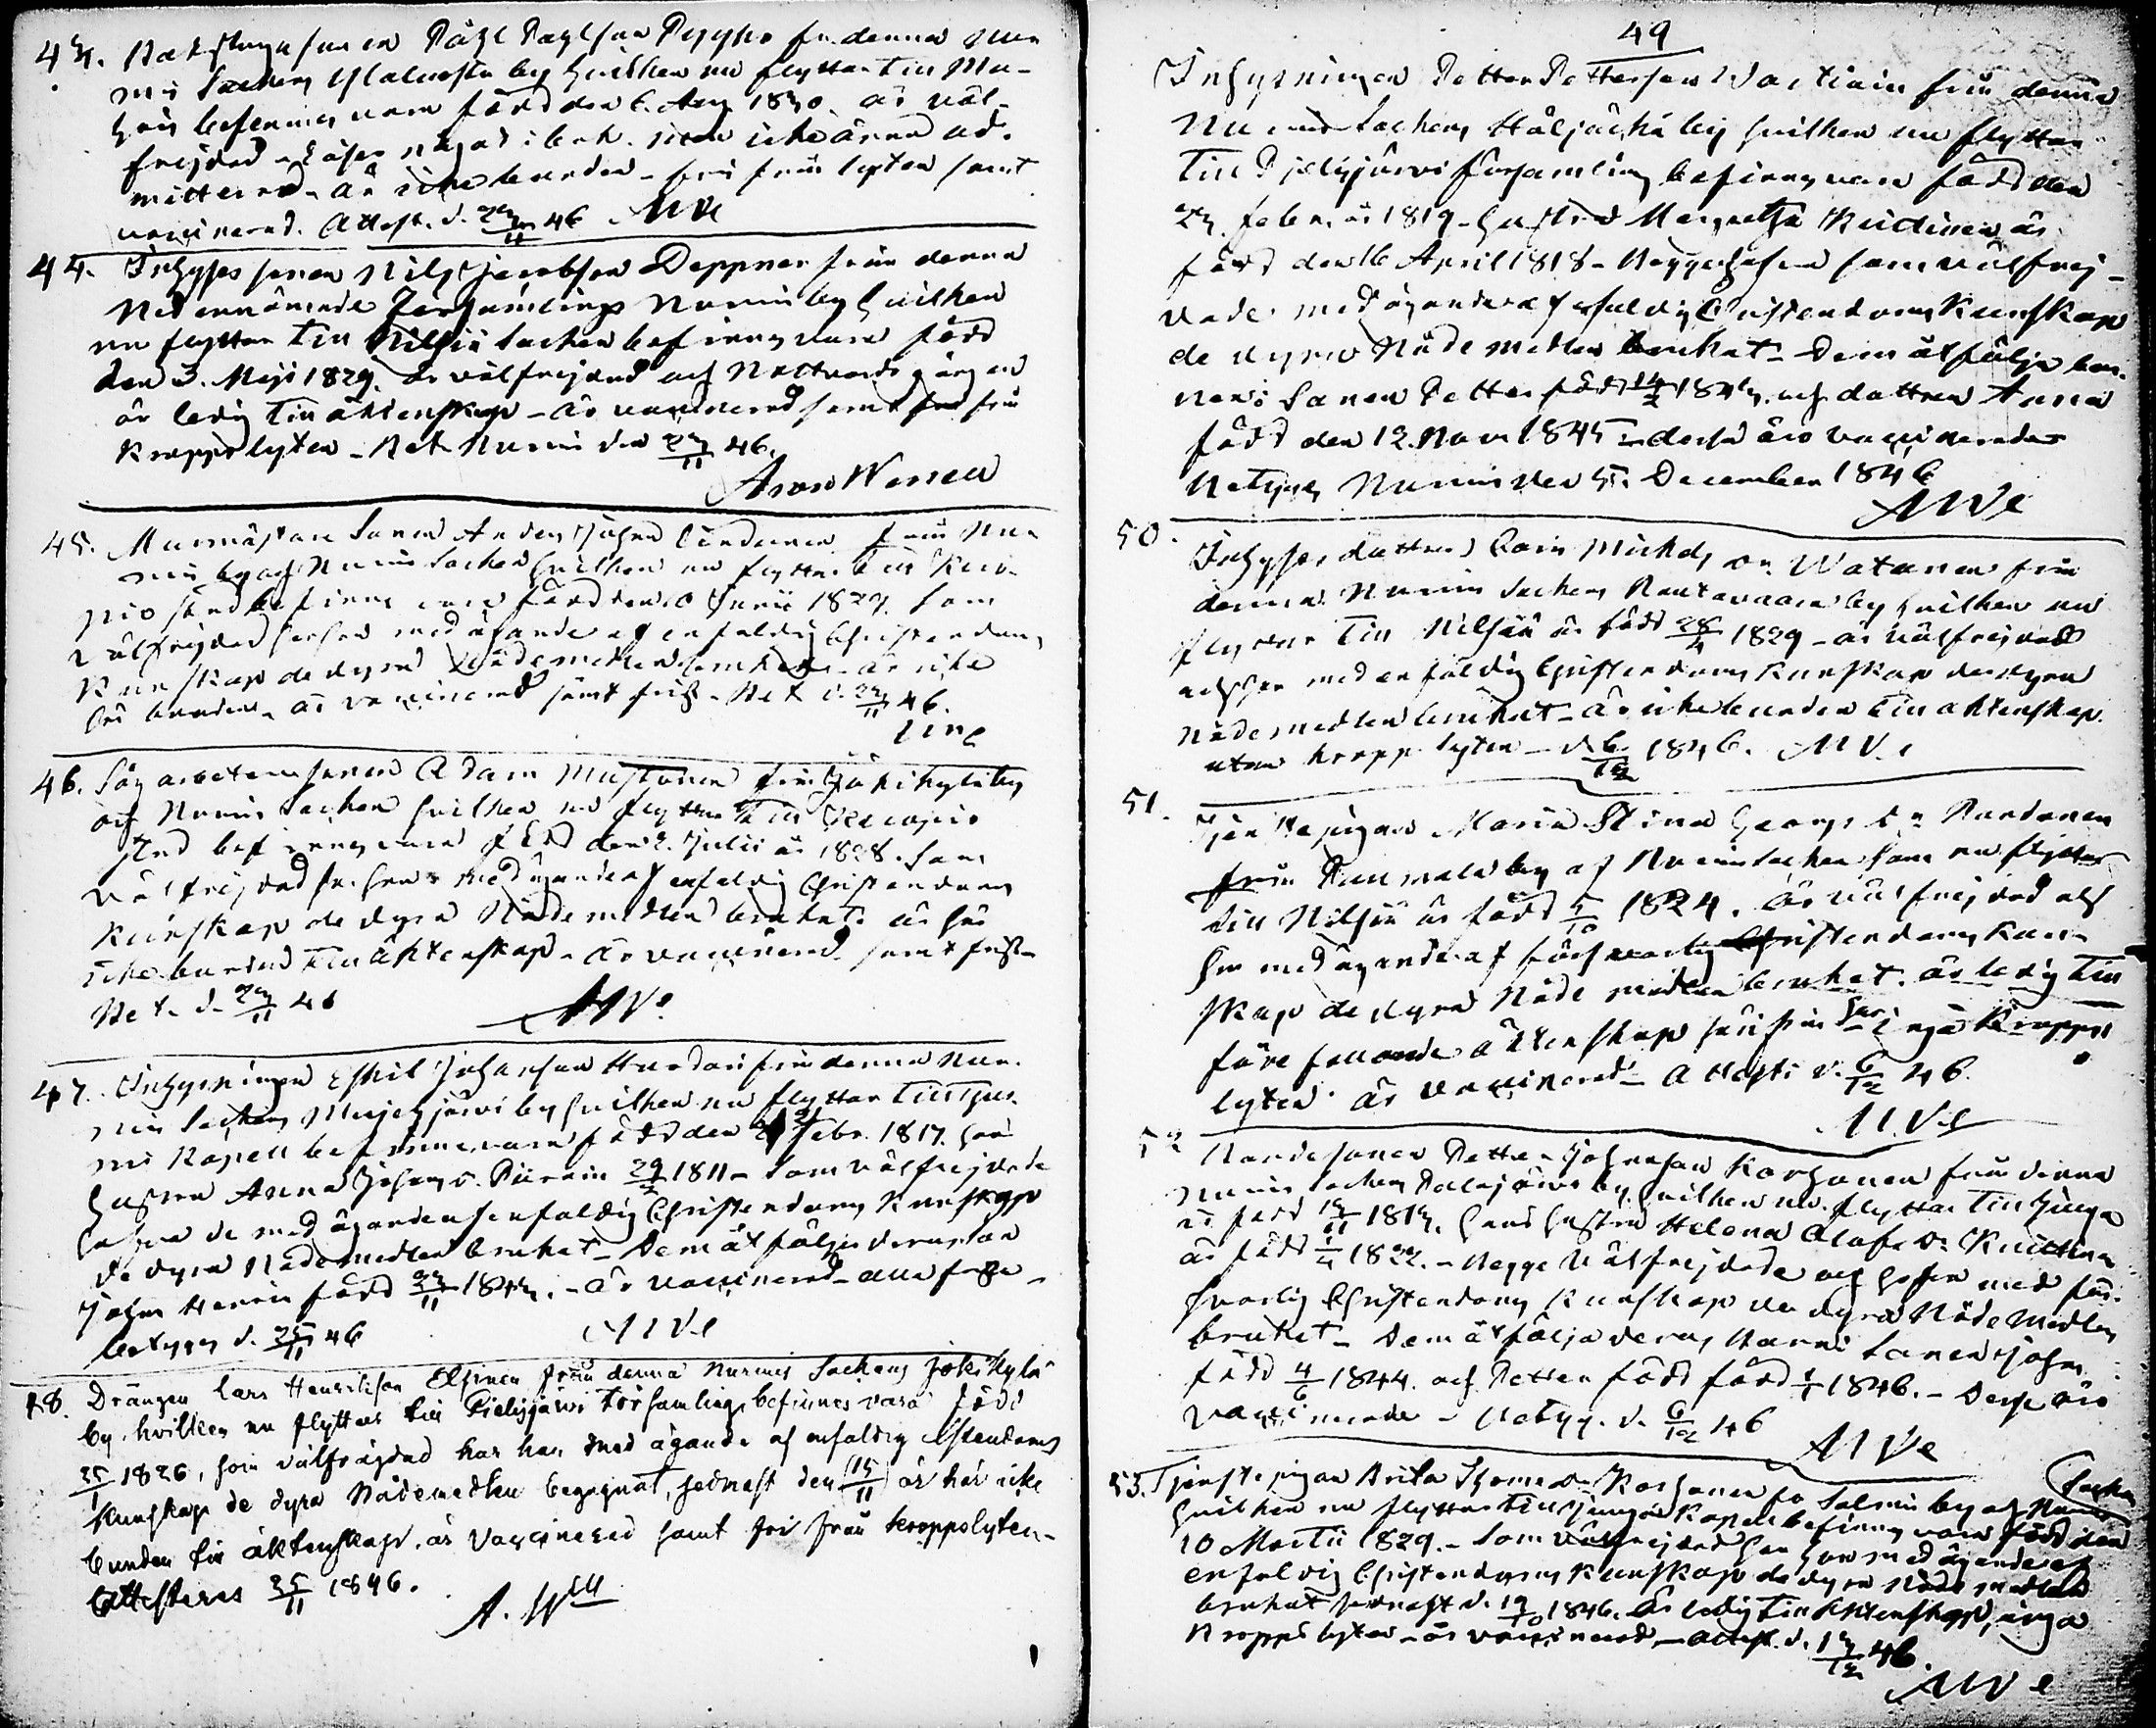 43. Backstugu sonen Påhl Påhlson Pyykö fr. denna Nur
mis Sockens Ylikylä by hvilken nu flyttar till Nur-
mis befinnes vara född den 6. Aug 1830. är väl-
frejdad läser något i bok. men icke ännu ad-
mitterad - är icke bunden - fri från lyten samt
vaccinerad. Attest. d. 23/11 46 AWe
44. Inhyses sonen Nils Jacobson Deppner från denna
Nedannämnde Församlings Nurmis by hvilken
nu flyttar till Nilsiä Socken befinnes vara född
den 3. Maji 1829. är välfrejdad och Nattvards gången
är ledig till äktenskap - är vaccinerad samt fri från
kroppslyten - Bet. Nurmis den 23/11 46.
Aron Wenell
45. Murmästare Sonen Anders Johan Lindunen från Nur-
mis by af Nurmis Socken hvilken nu flyttar till Kuo-
pio stad befinnes vara född den 10 Junii 1827. Som
välfrejdad har han med ägande af enfaldig Christendoms
Kunskap de dyra Nådemedlen brukat - är icke
här bunden - är vaccinerad samt frisk - Bet d. 23/11 46.
AWe
46. Såg arbetare sonen Adam Mustonen från Jokikylä by
af Nurmis Socken hvilken nu flyttar till Kuopio
stad befinnes vara född den 2. Julii år 1828. Som
välfrejdad har han med ägande af enfaldig Christendoms
Kunskap de dyra Nådemedlen brukat. är här
icke bunden till äktenskap - är vaccinerad samt frisk -
Bet. d. 23/11 46
AWe
47. Inhysningen Eskil Johansson Hurdain från denna Nur-
mis Sockens Mujejärvi by hvilken nu flyttar till
Kapell befinnes vara född den Febr. 1817. han
hustrun Anna Johans d. Piirain 29/2 1811 - Som välfrejdade
hafva de med ägande af enfaldig Christendoms Kunskap
de dyra Nådemedlen brukat - Dem åtfölja deras son
Johan Henrik född 22/11 1843. - är vaccinerad - alla friska -
betygas d. 25/11 46
AWe
48. Drängen Lars Henriksson Elsinen från denna Nurmis Sockens Jokikylä
by, hvilken nu flyttar till Pielisjärvi Församling, befinnes vara född
25/1 1826, som välfrägdad har han med ägande af enfaldig Christendoms
Kunskap de dyra Nådemedlen begagnat, sednast den (15/11) är här icke
bunden till äktenskap, är vaccinerad samt fri från kroppslyten -
Attesteras 25/11 1846.
A. Wll
49
Inhysningen Petter Pettersson Wartiain från denna
Nurmis Sockens Höljäkkä by hvilken nu flyttar
till Pielisjärvi församling befinnes vara född den
23. Febr. år 1819. Hustrun Margretha Kuitinen är
född den 16 April 1818 - Begge hafva som välfrej-
dade med ägande af enfaldig Christendoms Kunskap
de dyra Nådemedlen brukat - Dem åtfölja bar-
nen: Sonen Petter född 14/2 1843. och dottren Anna
född den 12. Nov 1845 - dessa äro vaccinerade
Betygas Nurmis den 5. December 1846
AWe
50. Inhyses dottren Carin Mickels dr. Watanen från
denna Nurmis Sockens Rautavaara by hvilken nu
flyttar till Nilsiä är född 28/4 1829 - är välfrejdad
och har med enfaldig Christendoms Kunskap de dyra
Nådemedlen brukat - är icke bunden till äktenskap.
utan kropps lyten - d. 6/12 1846. AWe
51. Tjenstepigan Maria Stina Georgs dr Puntanen
från Puumala by af Nurmis Socken som nu flyttar
till Nilsiä är född 5/10 1824. är välfrejdad och
har med ägande af försvarlig Christendoms Kun-
skap de dyra Nåde medlen brukat. är ledig till
före fallande äktenskap härifrån har inga kropps
lyten. är vaccinerad - Attest. d. 6/12 46.
AWe
52 Bondesonen Petter Johansson Korhonen från denna
Nurmis Sockens Palojärvi by hvilken nu flyttar till Juuga
är född 13/11 1819. hans hustru Helena Olofs dr Kuittinen
är född 1/4 1822. - Begge välfrejdade och hafva med för-
svarlig Christendoms Kunskap de dyra Nåde Medlen
brukat - Dem åtfölja deras Barn: Sonen Johan
född 4/6 1844. och Petter född född 1/1 1846. - Dessa äro
vaccinerade - Betyg. d. 6/12 46
AWe
53. Tjenstepigan Brita Thoms dr Korhonen fr Salmis by af Nurmis Socken
hvilken nu flyttar till Juuga Kapell befinnes vara född den
10 Martii 1829. - Som välfrejdad har hon med ägande af
enfaldig Christendoms Kunskap de dyra Nåde medlen
brukat sednast d. 19/10 1846. är ledig till äktenskap, inga
kropps lyten - är vaccinerad - attest. d. 13/12 46
AWe